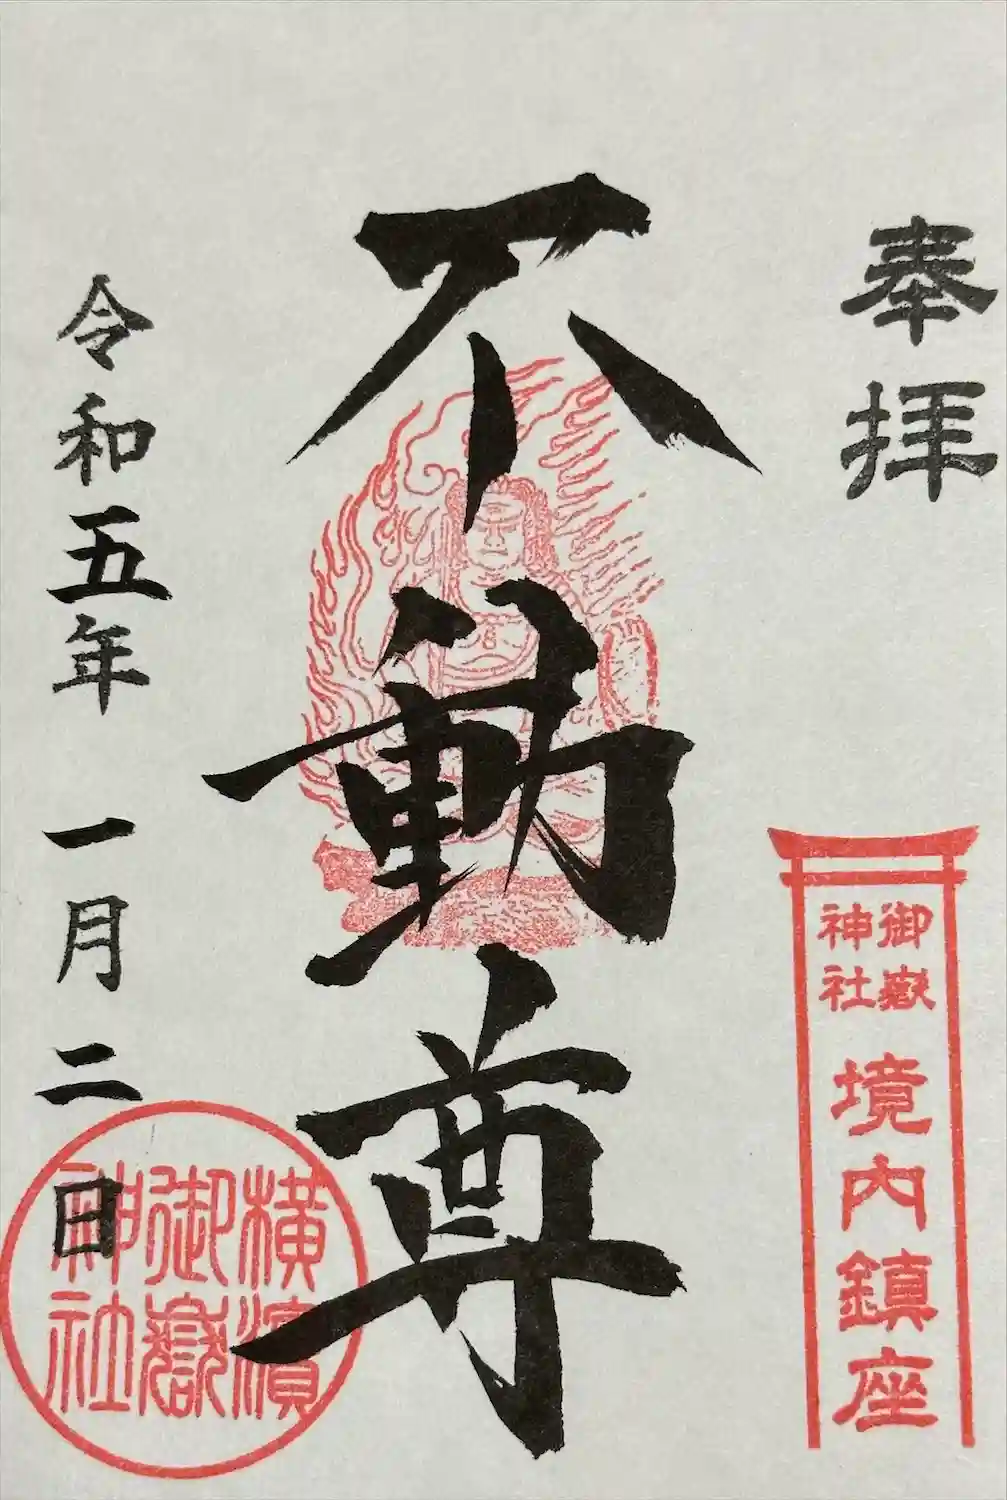 奉拝
御嶽
神社
境内鎮座
不動尊
令和五年一月二日
横濱
御嶽
神社